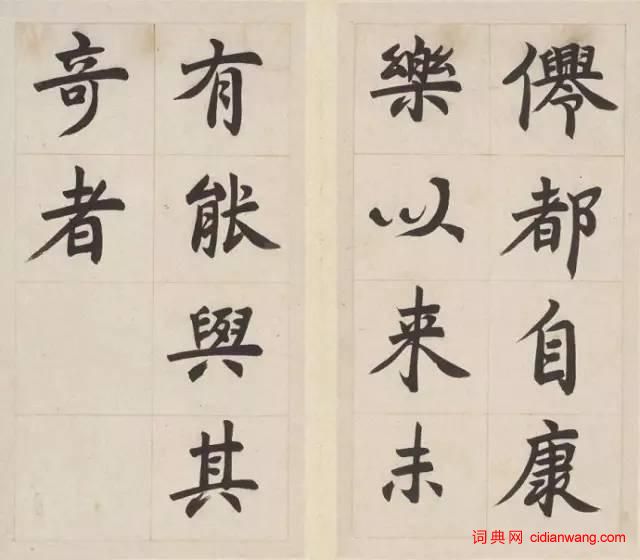 僊都自康
樂以来未
有能與其
竒者
词典网 cidianwang.com